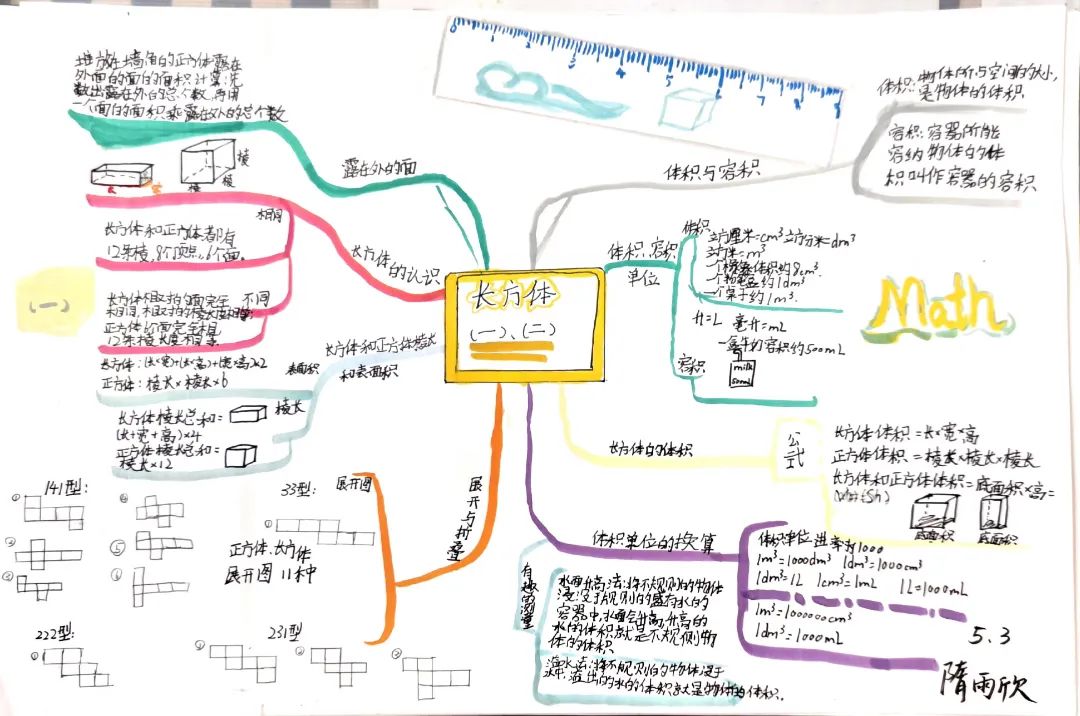 长方体
(一)、(二)
堆放在墙角的正方体露在
外面的面的面积计算:先
数出露在外的总个数,再用
一个面的面积乘露在外的总个数
露在外的面
棱
棱
棱
长方体
的认识
相同
长方体和正方体都有
12条棱,8个顶点,6个面。
(一)
不同
长方体相对的面完全
相同,相对的棱长度相等
正方体6个面完全相
12条棱长度相等
长方体和正方体棱长
和表面积
表面积
长方体:(长×宽)+(长×高)+(宽×高)×2
正方体:棱长×棱长×6
棱长
长方体棱长总和=
(长+宽+高)×4
正方体棱长总和=
棱长×12
展开与折叠
展开图
141型:
33型:
正方体、长方体
展开图11种
222型:
231型
0
4
体积与容积
体积:物体所占空间的大小,
是物体的体积
容积:容器所能
容纳物体的体
积叫作容器的容积
体积、容积
单位
体积
立方厘米=cm³ 立方分米=dm³
立方米=m³
体积约8cm³
一个粉笔盒约1dm³
一个桌子约1m³.
容积
升=L 毫升=mL
一盒牛奶容积约500mL
milk
500ml
Math
长方体的体积
公式
长方体体积=长×宽×高
正方体体积=棱长×棱长×棱长
长方体和正方体体积=底面积×高=
底面积
底面积
体积单位的换算
体积单位进率为1000
1m³=1000dm³ 1dm³=1000cm³
1dm³=1L 1cm³=1mL 1L=1000mL
1m³=1000000cm³
1dm³=1000mL
有趣的测量
水面升高法:将不规则的物体
浸没于规则的盛有水的
容器中,水面会升高,升高的
水的体积就是不规则物
体的体积
溢水法:将不规则的物体浸于
水中,溢出的水的体积就是物体的体积。
5.3
隋雨欣